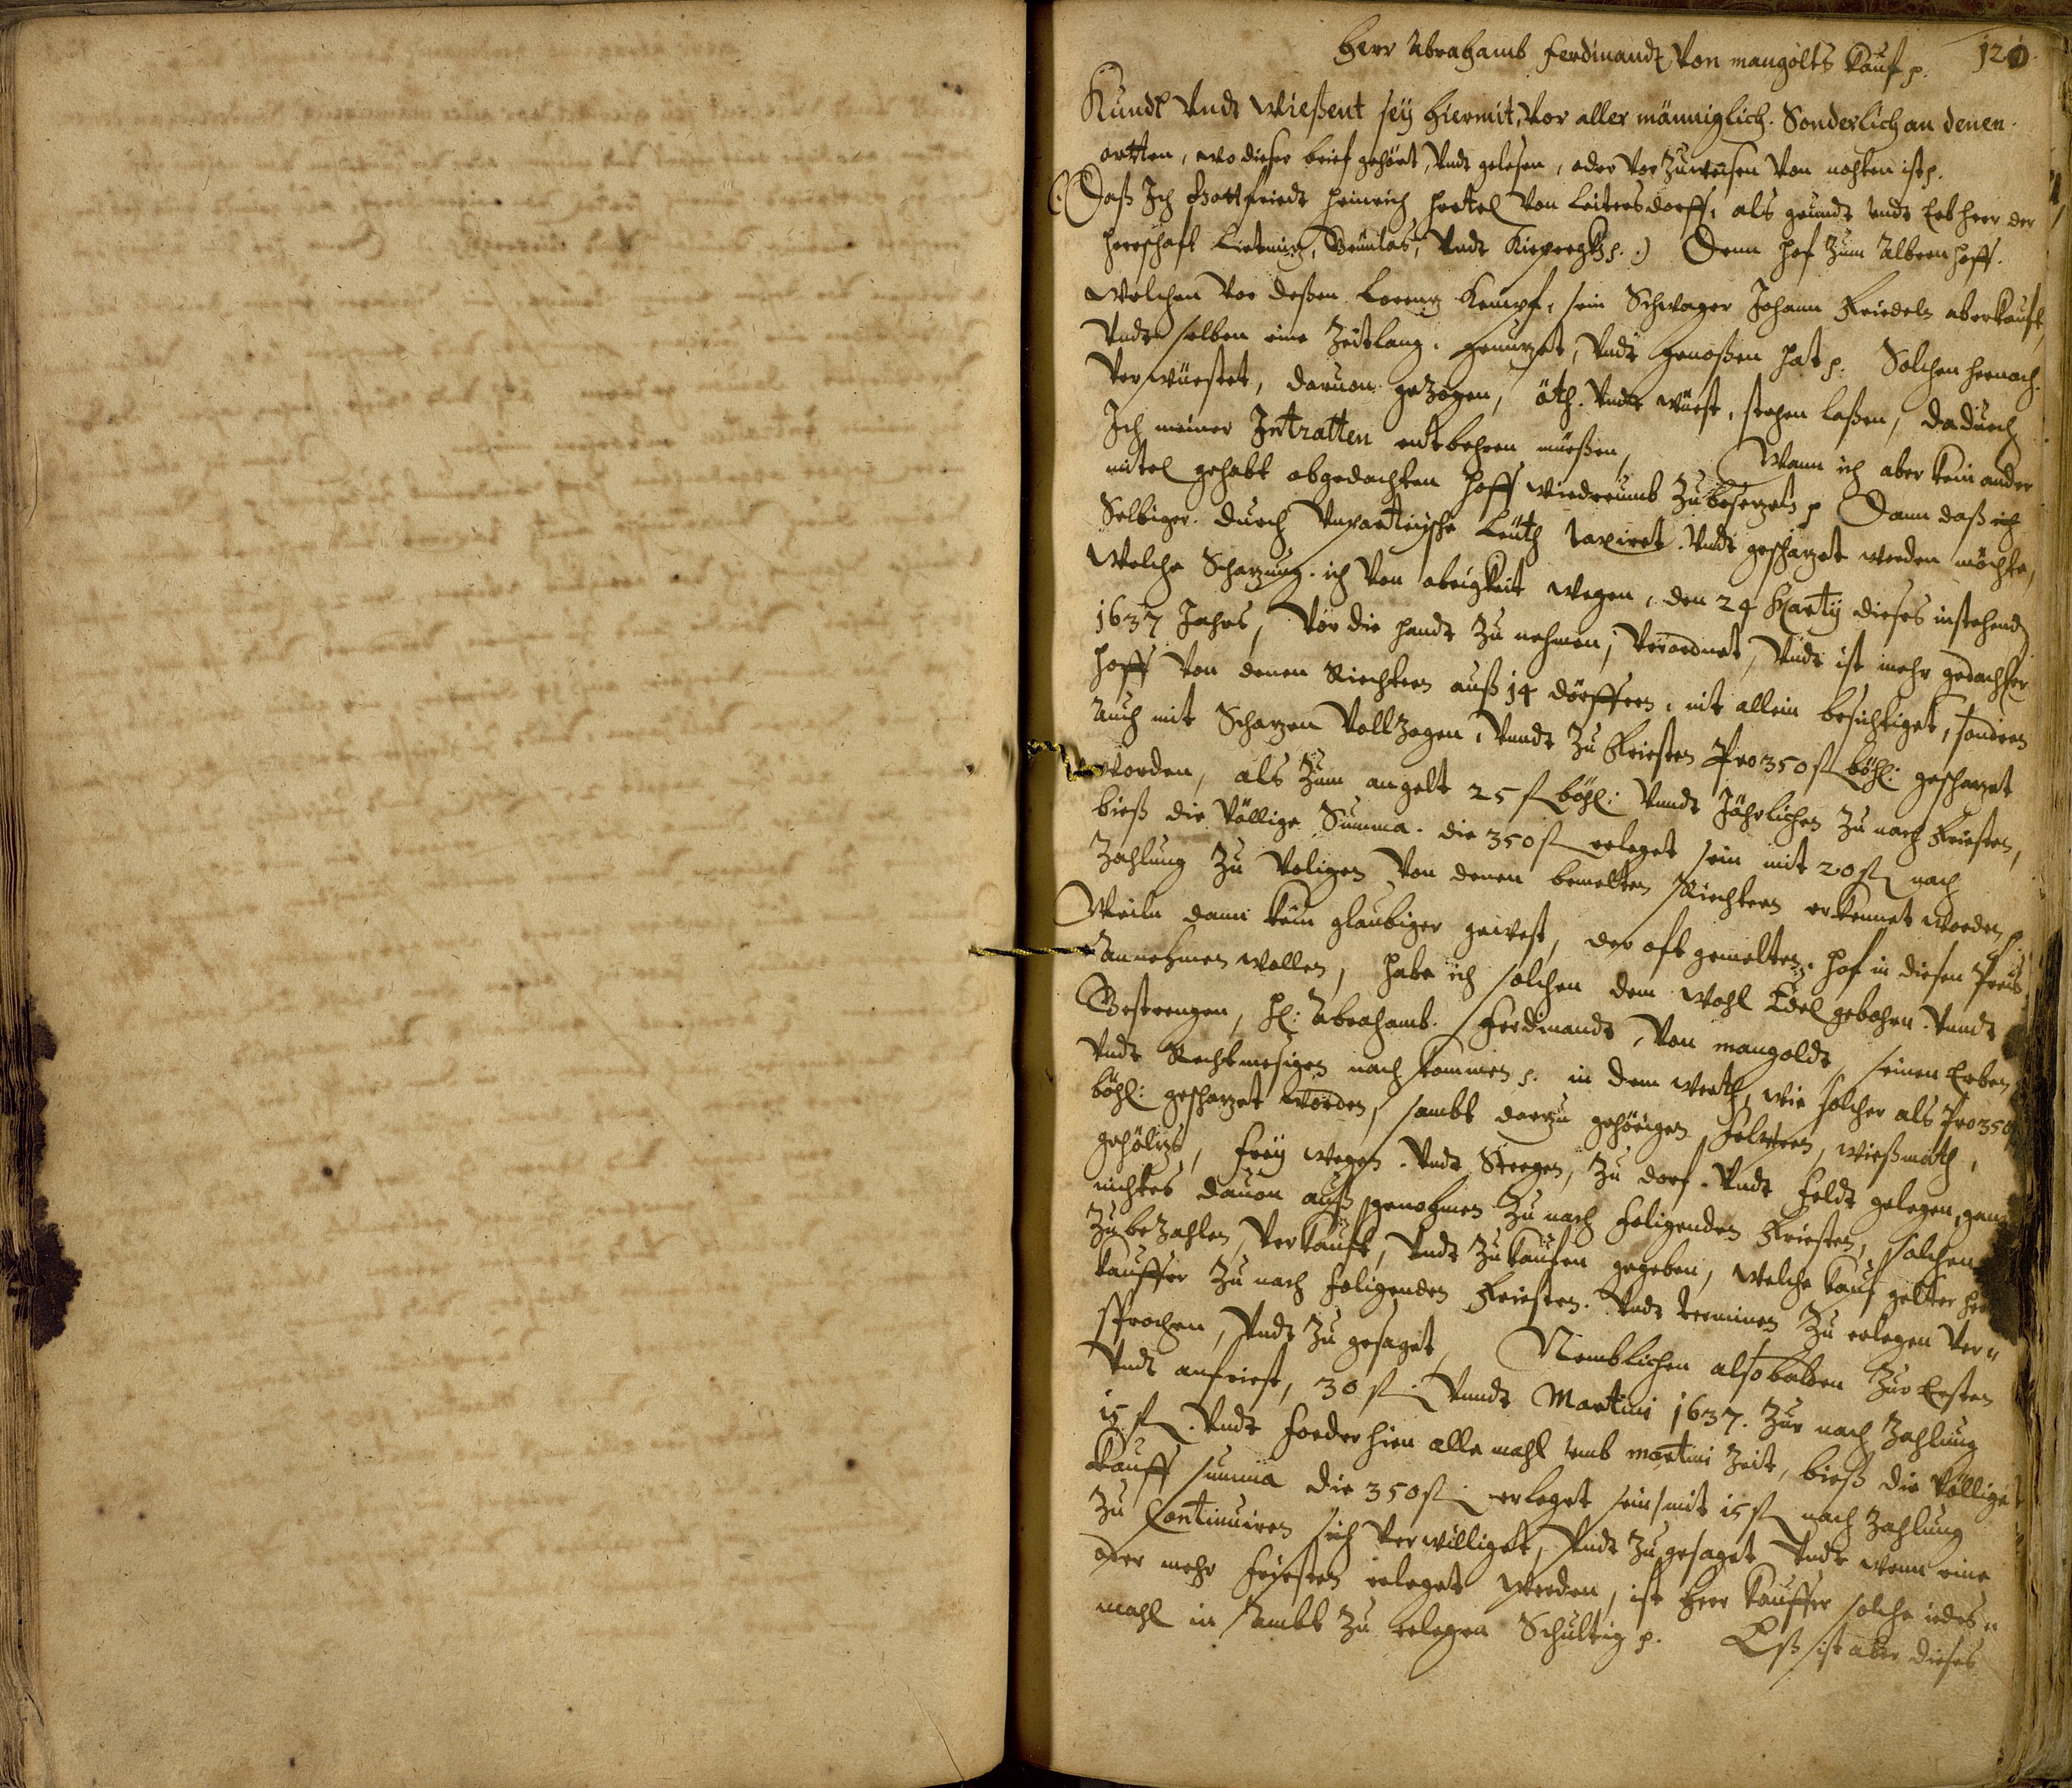 Herr Abrahamb Ferdinandt Von mangolts Kauf p. 120
Kundt Vndt Wießent seÿ hiermit, Vor aller männiglich. Sonderlich an denen
ortten, wo dieser brief gehört, Vndt gelesen, oder Vor Zuweisen Von nohten ist p.
(Daß Ich Gottfriedt Heinrich Hertel Von Leitersdorff, als grundt Vndt Erbherr der
Herrschaft Vndt p.) Denn Hof Zum Albern hoff.
Welchen Vor deßen Lorentz Kempf, sein Schwager Johann Friedeln aberkauft,
Vndt selben eine Zeitlang genutzet, Vndt genoßen hat p. Solchen hernach
Verwüestet, daruon gezogen, öth. Vndt wüest, stehen laßen, dadurch
Ich meiner Intratten entbehren müeßen, Wann ich aber kein ander
mitel gehabt obgedachten Hoff wiedreumb Zubesetzen p Dann daß ich
Selbiger durch Vnpartÿische Leüth taxiret. Vndt geschatzet werden möchte,
Welche Schatzung ich Von obrigkeit wegen, den 24 Martÿ dieses instehend
1637 Jahrs, Vor die handt Zu nehmen, Verordnet, Vndt ist mehr gedachter
Hoff Von denen Riechtern auß 14 dörffern, nit allein besichtiget, sondern
Auch mit Schatzen Vollzogen, Vnndt Zu Friesten Pro 350 fl böhl: geschatzet
worden, als Zum angelt 25 fl böhl: Vnndt Jährlichen Zu nach Friesten,
bieß die Völlige Summa. die 350 fl erleget sein mit 20 fl nach
Zahlung Zu Volgen Von denen bemelten Riechtern erkennet worden p.
Weiln dann kein glaubiger gewest, der oft gemelten Hof in diesen Preis
Annehmen wollen, habe ich solchen dem Wohl Edel gebohrn Vnndt
Gestrengen, H: Abrahamb Ferdinandt Von mangoldt, seinen Erben
Vndt Rechtmesigen nachkommen p. in dem werth, wie solcher als Pro 350 fl
böhl: geschatzet worden, sambt darzu gehörigen Feldern, wießmath,
gehöltz, freÿ wegen Vndt Steegen, Zu dorf Vndt Feldt gelegen, ganz
nichtes dauon außgenohmen Zu nach folgenden Friesten, solchen
Zubezahlen, Verkauft, Vndt Zukaufen gegeben, welche Kauf gelter
Kauffer Zu nach folgenden Friesten Vndt terminen Zu erlegen Ver=
sprochen, Vndt Zu gesaget, Nemblichen alsobalden Zur Ersten
Vndt anfriest, 30 fl. Vnndt Martini 1637. Zur nach Zahlung
15 fl. Vndt forderhien alle mahl vmb martini Zeit, bieß die Völlige
Kauff summa die 350 fl. erleget sein mit 15 fl nach Zahlung
Zu Continuiren sich Verwilliget, Vndt Zugesaget Vndt wenn eine
oder mehr Friesten erleget werden, ist Herr Kauffer solche iedes=
mahl in sambt Zu erlegen Schultig p. Eß ist aber dieses